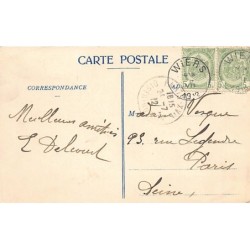 CARTE POSTALE
CORRESPONDANCE
WIERS
Meilleures amitiés
E. Delcourt
Madame Vergue
93, rue Legendre
Paris
Seine,